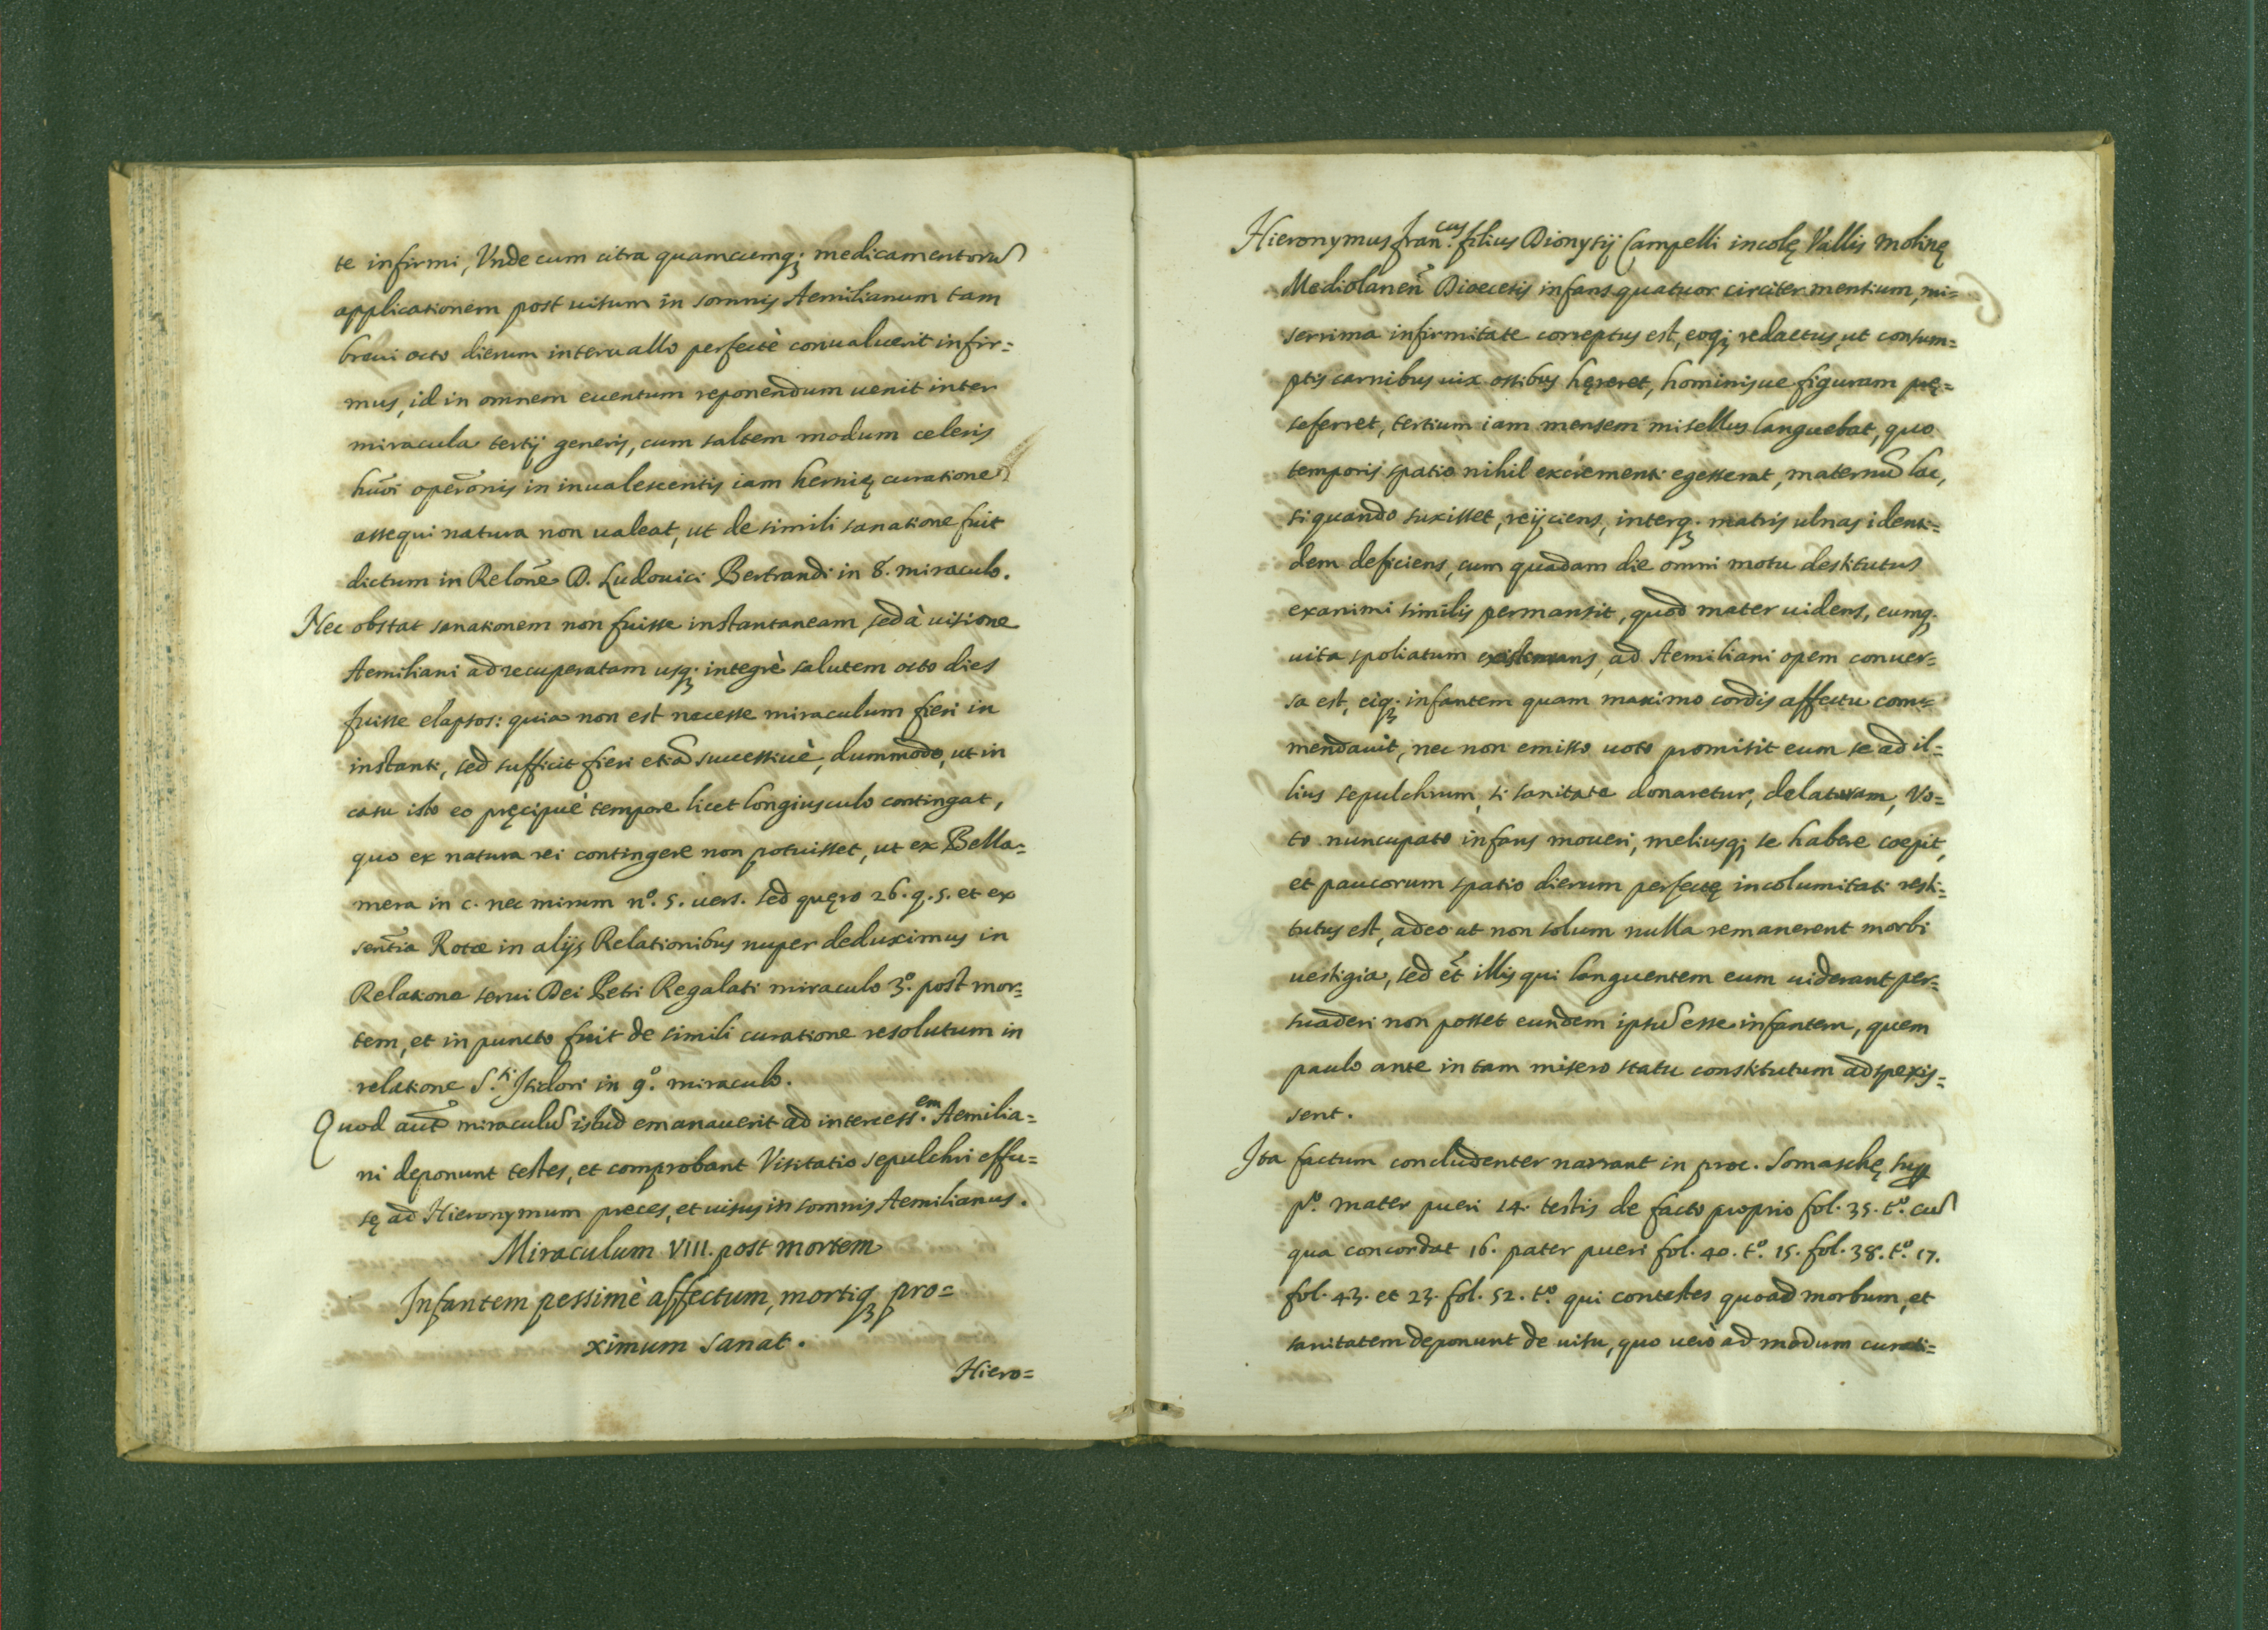 te infirmi, Vnde cum citra quamcumq; medicamentorũ
applicationem post uisum in somnis Aemilianum tam
breui octo dierum interuallo perfectè conualuerit infir=
mus, id in omnem euentum reponendum uenit inter
miracula tertij generis, cum saltem modum celeris
hũoi operõnis in inualescentis iam hernię curatione
assequi natura non ualeat, ut de simili sanatione fuit
dictum in Relõne D. Ludouici Bertrandi in 8. miraculo.
Nec obstat sanationem non fuisse instantaneam, sed à uisione
Aemiliani ad recuperatam usq; integrè salutem octo dies
fuisse elapsos: quia non est necesse miraculum fieri in
instanti, sed sufficit fieri etiã successiuè, dummodo, ut in
casu isto eo pręcipuè tempore licet longiusculo contingat,
quo ex natura rei contingere non potuisset, ut ex Bella=
mera in c. nec mirum nº. 5. uers. sed quęro 26. q. 5. et ex
sentĩa Rotæ in alijs Relationibus nuper deduximus in
Relatione serui Dei Petri Regalati miraculo 3º. post mor=
tem, et in puncto fuit de simili curatione resolutum in
relatione S.ti Isidori in 9º. miraculo.
Quod aut̃ miraculũ istud emanauerit ad intercess.em Aemilia=
ni deponunt testes, et comprobant Visitatio sepulchri effu=
sę ad Hieronymum preces, et uisus in somnis Aemilianus.
Miraculum VIII. post mortem
Infantem pessimè affectum, mortiq; pro=
ximum sanat.
Hiero=
Hieronymus Fran.cus filius Dionysij Campelli incolę Vallis Molinę
Mediolaneñ Dioecesis infans quatuor circiter mensium, mi=
serrima infirmitate correptus est, eoq; redactus, ut consum=
ptis carnibus uix ossibus hęreret, hominisue figuram prę=
seferret, tertium iam mensem misellus languebat, quo
temporis spatio nihil excrementi egesserat, maternũ lac,
si quando suxisset, reijciens, interq; matris ulnas identi=
dem deficiens, cum quadam die omni motu destitutus
exanimi similis permansit, quod mater uidens, eumq;
uita spoliatum existimans, ad Aemiliani opem conuer=
sa est, eiq; infantem quam maximo cordis affectu com=
mendauit, nec non emisso uoto promisit eum se ad il=
lius sepulchrum, si sanitate donaretur, delaturam, Vo=
to nuncupato infans moueri, meliusq; se habere coepit,
et paucorum spatio dierum perfectę incolumitati resti=
tutus est, adeo ut non solum nulla remanerent morbi
uestigia, sed et̃ illis qui languentem eum uiderant per=
suaderi non posset eundem ipsũ esse infantem, quem
paulo ante in tam misero statu constitutum adspexis=
sent.
Ita factum concludenter narrant in proc. Somaschę sup
pº. mater pueri 14. testis de facto proprio fol. 35. tº. cũ
qua concordat 16. pater pueri fol. 40. tº. 15. fol. 38. tº. 17.
fol. 43. et 23. fol. 52. tº. qui contestes quoad morbum, et
sanitatem deponunt de uisu, quo uerò ad modum curati=